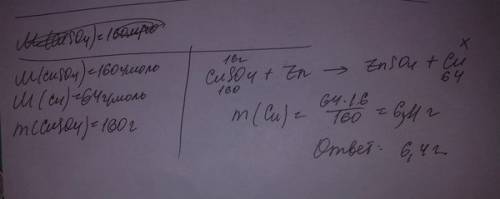 M(CuSO₄)=160г/моль
M(CuSO₄)=160г/моль
M(Cu)=64г/моль
m(CuSO₄)=160г
16г x
CuSO₄ + Zn → ZnSO₄ + Cu
160 64
m(Cu) = 64·16/160 = 6,4 г
Ответ: 6,4 г.